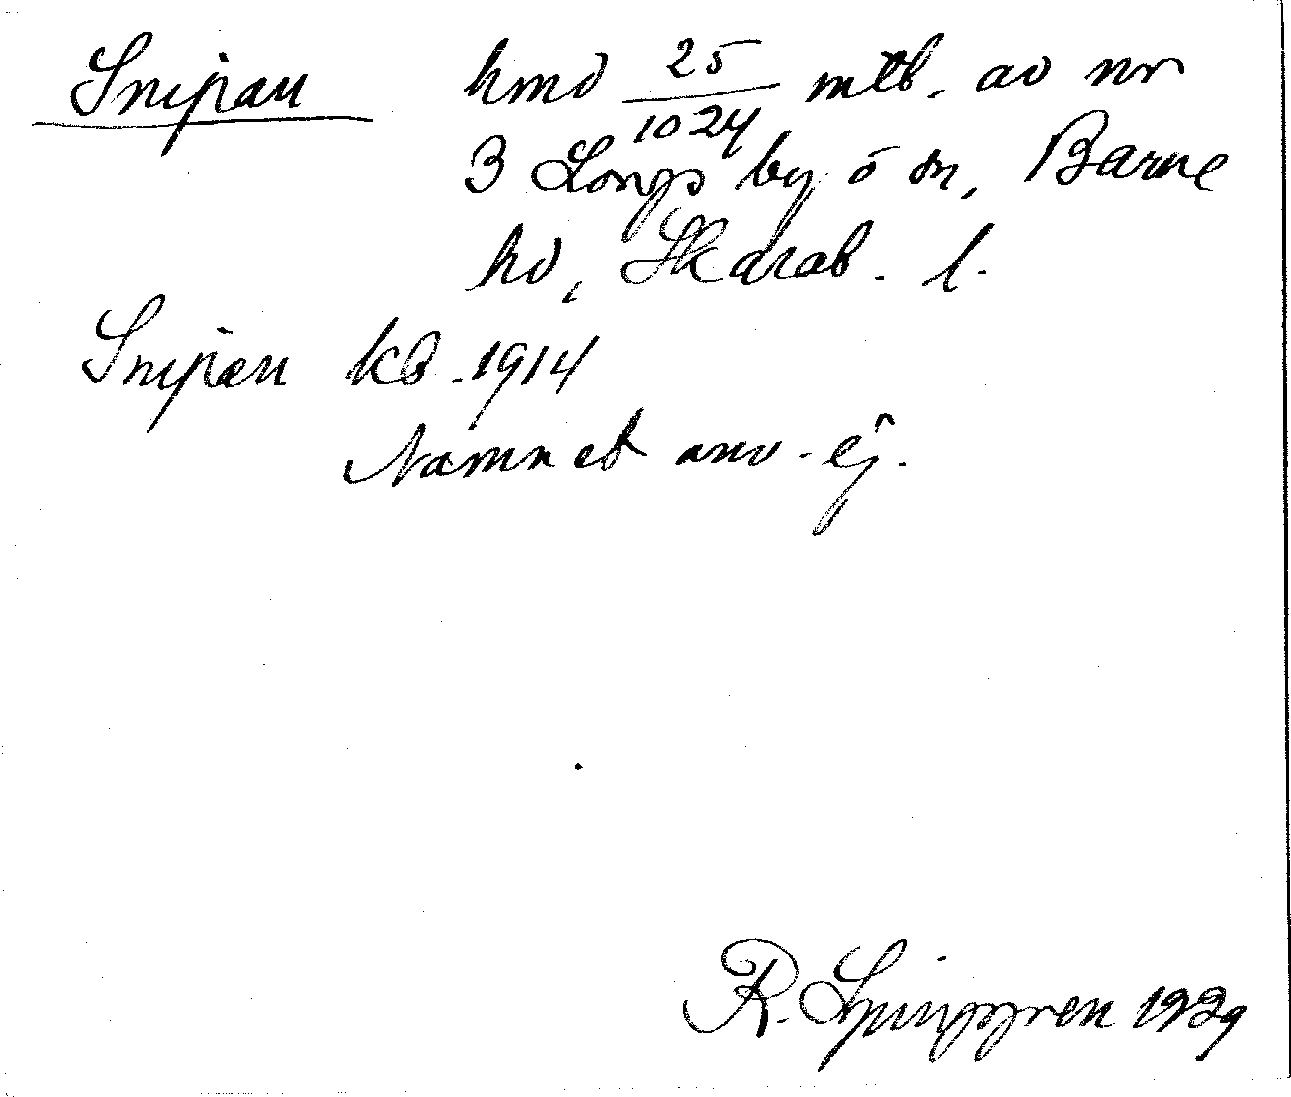 Snipan hmd 25/1024 mtl. av nr
3 Longs by ö sn, Barne
hd, Skarab. l.
Snipan kb. 1914
Namnet anv. ej.
R. Ljunggren 1929